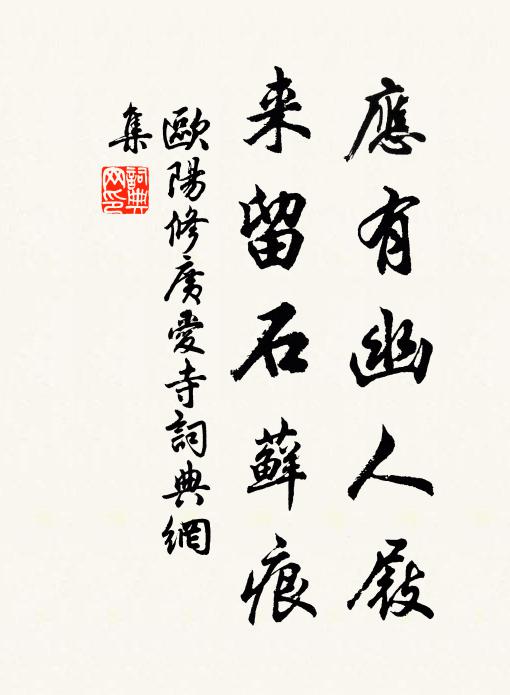 應有幽人屐
来留石蘚痕
歐陽修廣愛寺詞典網
集
詞典
网印